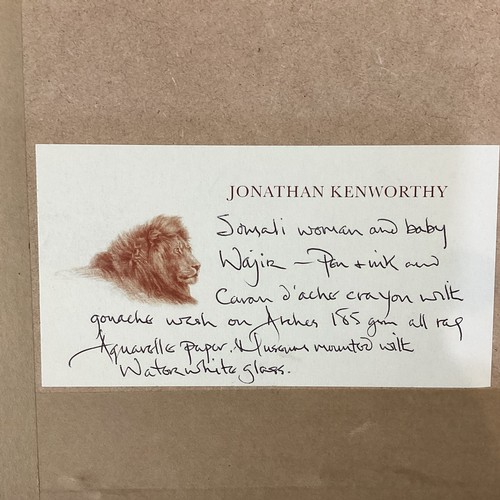 JONATHAN KENWORTHY
Somali woman and baby
Wajir – Pen + ink and
Caran d'ache crayon with
gouache wash on Arches 185 gm all rag
Aquarelle paper. Museum mounted with
Water white glass.